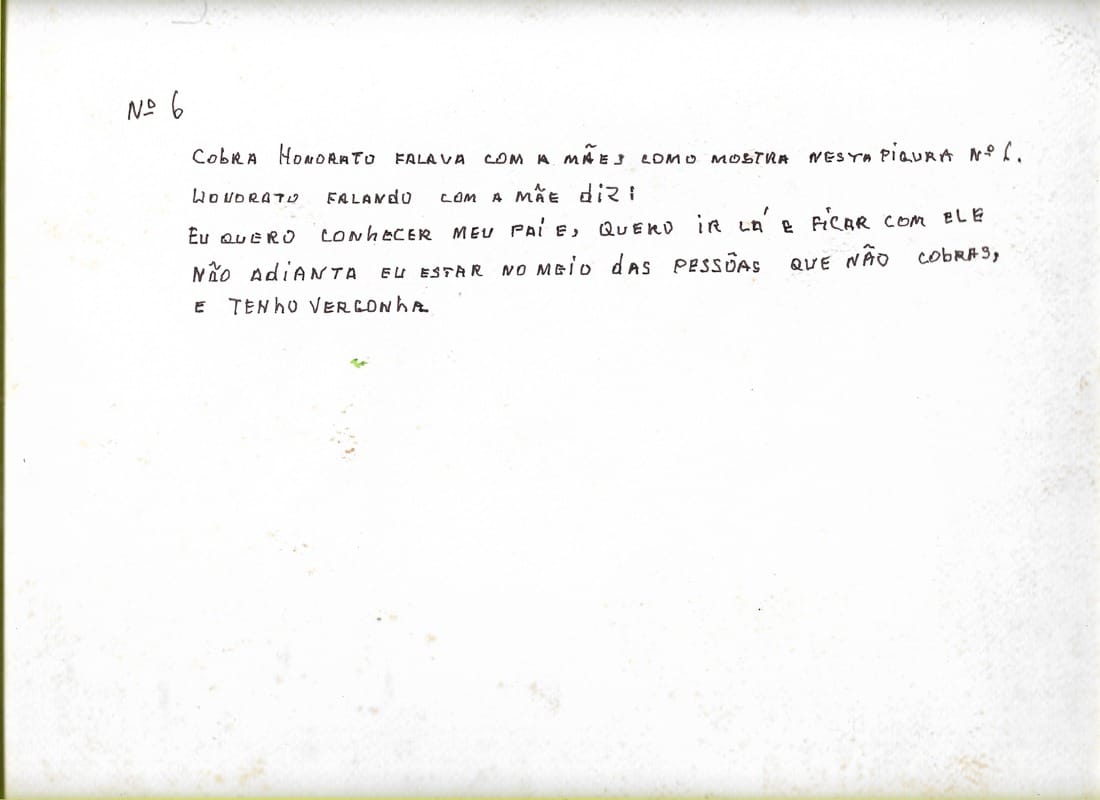 Nº 6
COBRA HONORATO FALAVA COM A MÃES COMO MOSTRA NESTA FIGURA Nº 6.
HONORATO FALANDO COM A MÃE diz:
EU QUERO CONHECER MEU PAÍE, QUERO IR LÁ E FICAR COM ELE
NÃO ADIANTA EU ESTAR NO MEIO dAS PESSÔAS QUE NÃO COBRAS,
E TENHO VERGONHA